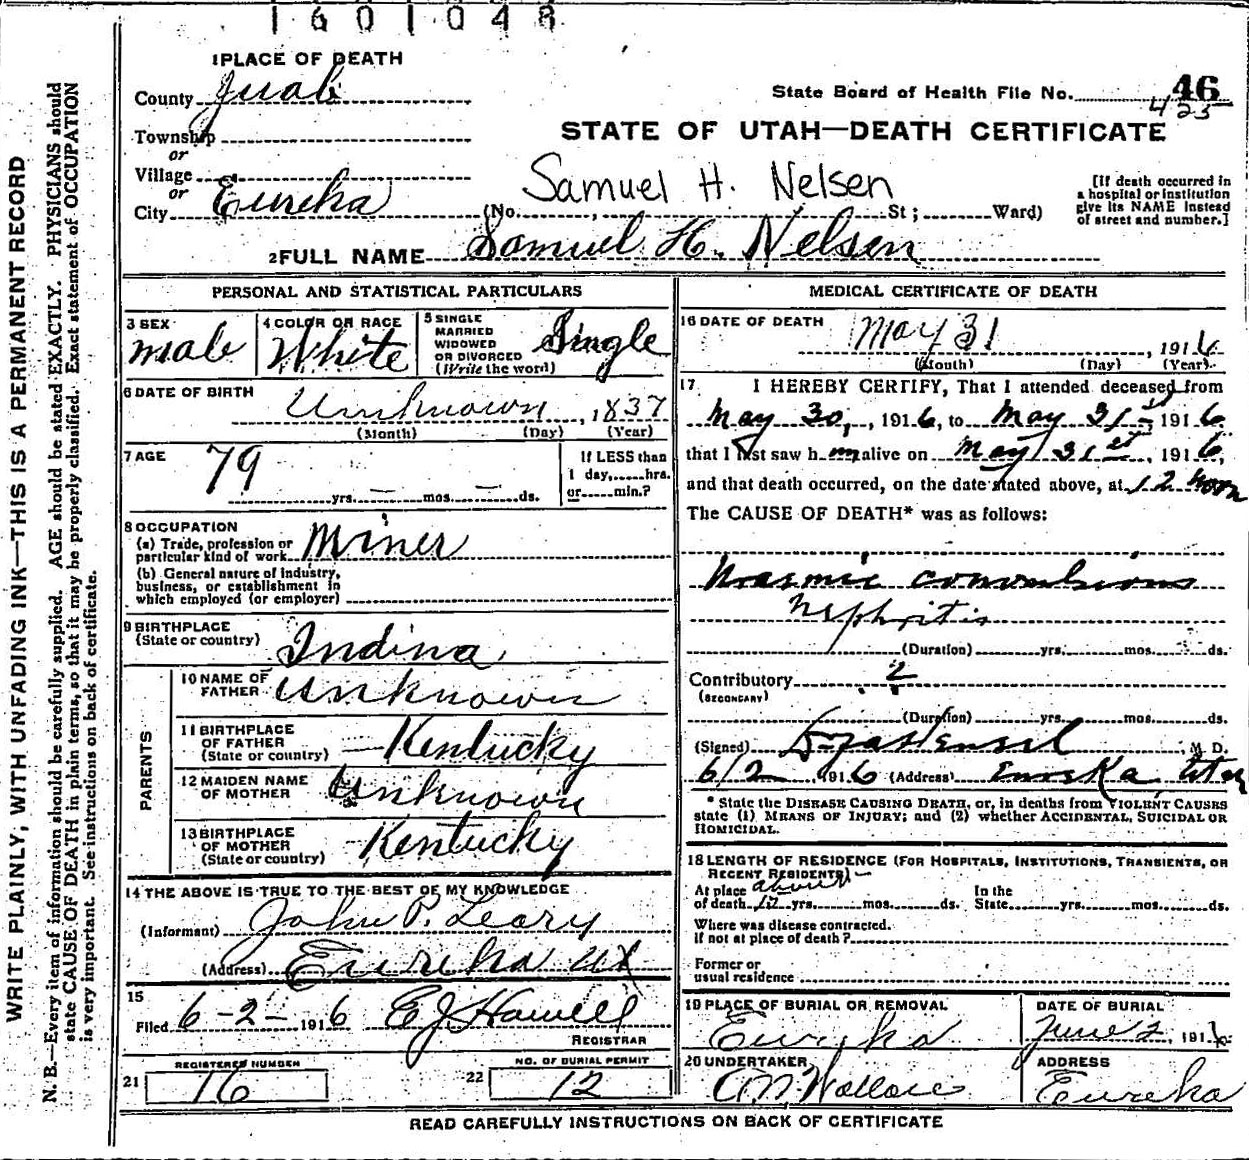 1601048
WRITE PLAINLY, WITH UNFADING INK—THIS IS A PERMANENT RECORD
N. B.—Every item of information should be carefully supplied. AGE should be stated EXACTLY. PHYSICIANS should
state CAUSE OF DEATH in plain terms, so that it may be properly classified. Exact statement of OCCUPATION
is very important. See instructions on back of certificate.
1 PLACE OF DEATH
County Juab
Township
or
Village
or
City Eureka
State Board of Health File No. 46
423
STATE OF UTAH—DEATH CERTIFICATE
Samuel H. Nelsen
(No. , St; Ward)
[If death occurred in
a hospital or institution
give its NAME instead
of street and number.]
2 FULL NAME Samuel H. Nelsen
PERSONAL AND STATISTICAL PARTICULARS
3 SEX
male
4 COLOR OR RACE
White
5 SINGLE
MARRIED
WIDOWED
OR DIVORCED
(Write the word)
Single
6 DATE OF BIRTH
Unknown, 1837
(Month) (Day) (Year)
7 AGE
79 yrs. — mos. — ds.
If LESS than
1 day, hrs.
or min.?
8 OCCUPATION
(a) Trade, profession or
particular kind of work Miner
(b) General nature of industry,
business, or establishment in
which employed (or employer)
9 BIRTHPLACE
(State or country) Indina
PARENTS
10 NAME OF
FATHER Unknown
11 BIRTHPLACE
OF FATHER
(State or country) Kentucky
12 MAIDEN NAME
OF MOTHER Unknown
13 BIRTHPLACE
OF MOTHER
(State or country) Kentucky
14 THE ABOVE IS TRUE TO THE BEST OF MY KNOWLEDGE
(Informant) John P. Leary
(Address) Eureka Ut
15
Filed 6-2- 1916 E J Howell
REGISTRAR
REGISTERED NUMBER
21 16
NO. OF BURIAL PERMIT
22 12
MEDICAL CERTIFICATE OF DEATH
16 DATE OF DEATH May 31, 1916
(Month) (Day) (Year)
17 I HEREBY CERTIFY, That I attended deceased from
May 30, 1916, to May 31st 1916
that I last saw h im alive on May 31st, 1916,
and that death occurred, on the date stated above, at 12 noon
The CAUSE OF DEATH* was as follows:
convulsions
Nephritis
(Duration) yrs. mos. ds.
Contributory ?
(SECONDARY)
(Duration) yrs. mos. ds.
(Signed) M D.
6/2 1916 (Address) Eureka Utah
* State the DISEASE CAUSING DEATH, or, in deaths from VIOLENT CAUSES
state (1) MEANS OF INJURY; and (2) whether ACCIDENTAL, SUICIDAL OR
HOMICIDAL.
18 LENGTH OF RESIDENCE (FOR HOSPITALS, INSTITUTIONS, TRANSIENTS, OR
RECENT RESIDENTS)
At place about
of death yrs. mos. ds.
In the
State yrs. mos. ds.
Where was disease contracted.
if not at place of death?
Former or
usual residence
19 PLACE OF BURIAL OR REMOVAL
Eureka
DATE OF BURIAL
June 2, 1916
20 UNDERTAKER
Wallace
ADDRESS
Eureka
READ CAREFULLY INSTRUCTIONS ON BACK OF CERTIFICATE